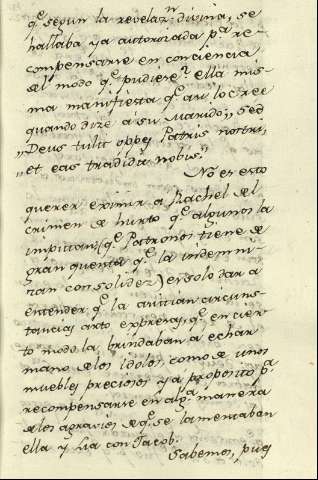 q.e segun la revelaz.n divina, se
hallaba ya autorizada p.a re-
compensarse en conciencia
del modo q.e pudiere, y ella mis-
ma manifiesta q.e asi lo cree
quando dize à su Marido: "Sed
"Deus tulit opes Patris nostri,
"et eas tradidit nobis."
No es esto
querer eximir a Rachel del
crimen de hurto q.e algunos la
imputan, (q.e Patronos tiene de
gran quenta q.e la indemni-
zan con solidez) es solo dar a
entender, q.e la asistian circuns-
tancias arto expresas, q.e en cier-
to modo la brindaban a echar
mano de los Idolos, como de unos
muebles preciosos y a proposito p.a
recompensarse en alg.a manera
de los agravios de q.e se lamentaban
ella y Lia con Jacob.
Sabemos, pues